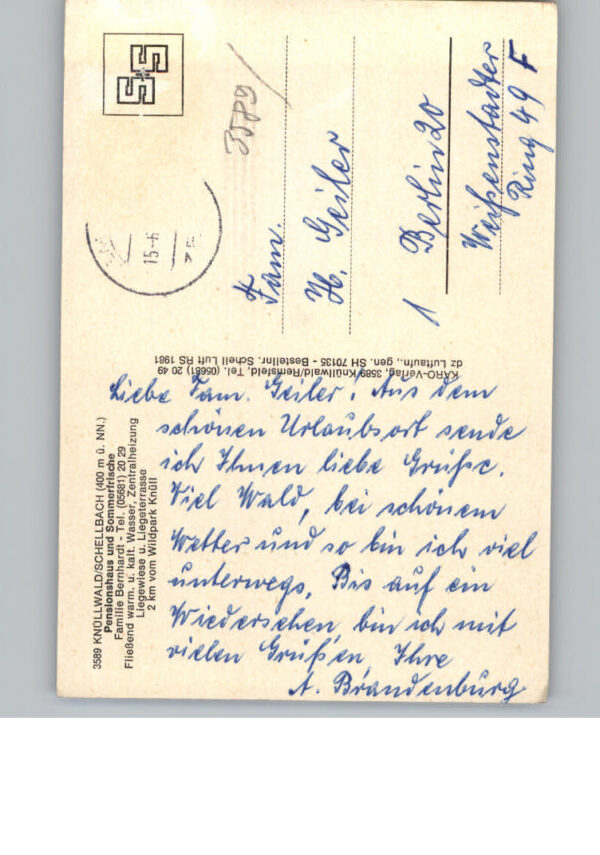 3589 KNÜLLWALD/SCHELLBACH (400 m ü. NN.)
Pensionshaus und Sommerfrische
Familie Bernhardt - Tel. (05681) 20 29
Fließend warm. u. kalt. Wasser, Zentralheizung
Liegewiese u. Liegeterrasse
2 km vom Wildpark Knüll
Liebe Fam. Geiler! Aus dem
schönen Urlaubsort sende
ich Ihnen liebe Grüße.
Viel Wald, bei schönem
Wetter und so bin ich viel
unterwegs. Bis auf ein
Wiedersehen, bin ich mit
vielen Grüßen, Ihre
A. Brandenburg
KARO-Verlag, 3589 Knüllwald/Remsfeld, Tel. (05681) 20 49
dz Luftaufn., gen. SH 70135 - Bestellnr. Schell Luft RS 1981
3589
15-6
Fam.
H. Geiler
1 Berlin 20
Weißenstadter
Ring 49 F